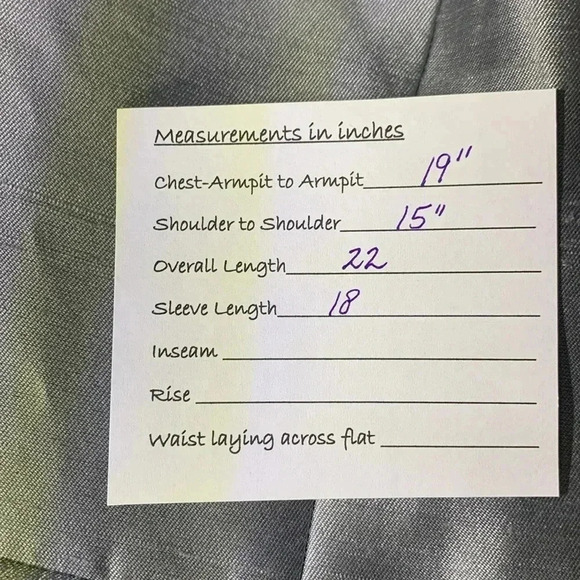 Measurements in inches
Chest-Armpit to Armpit 19"
Shoulder to Shoulder 15"
Overall Length 22
Sleeve Length 18
Inseam
Rise
Waist laying across flat